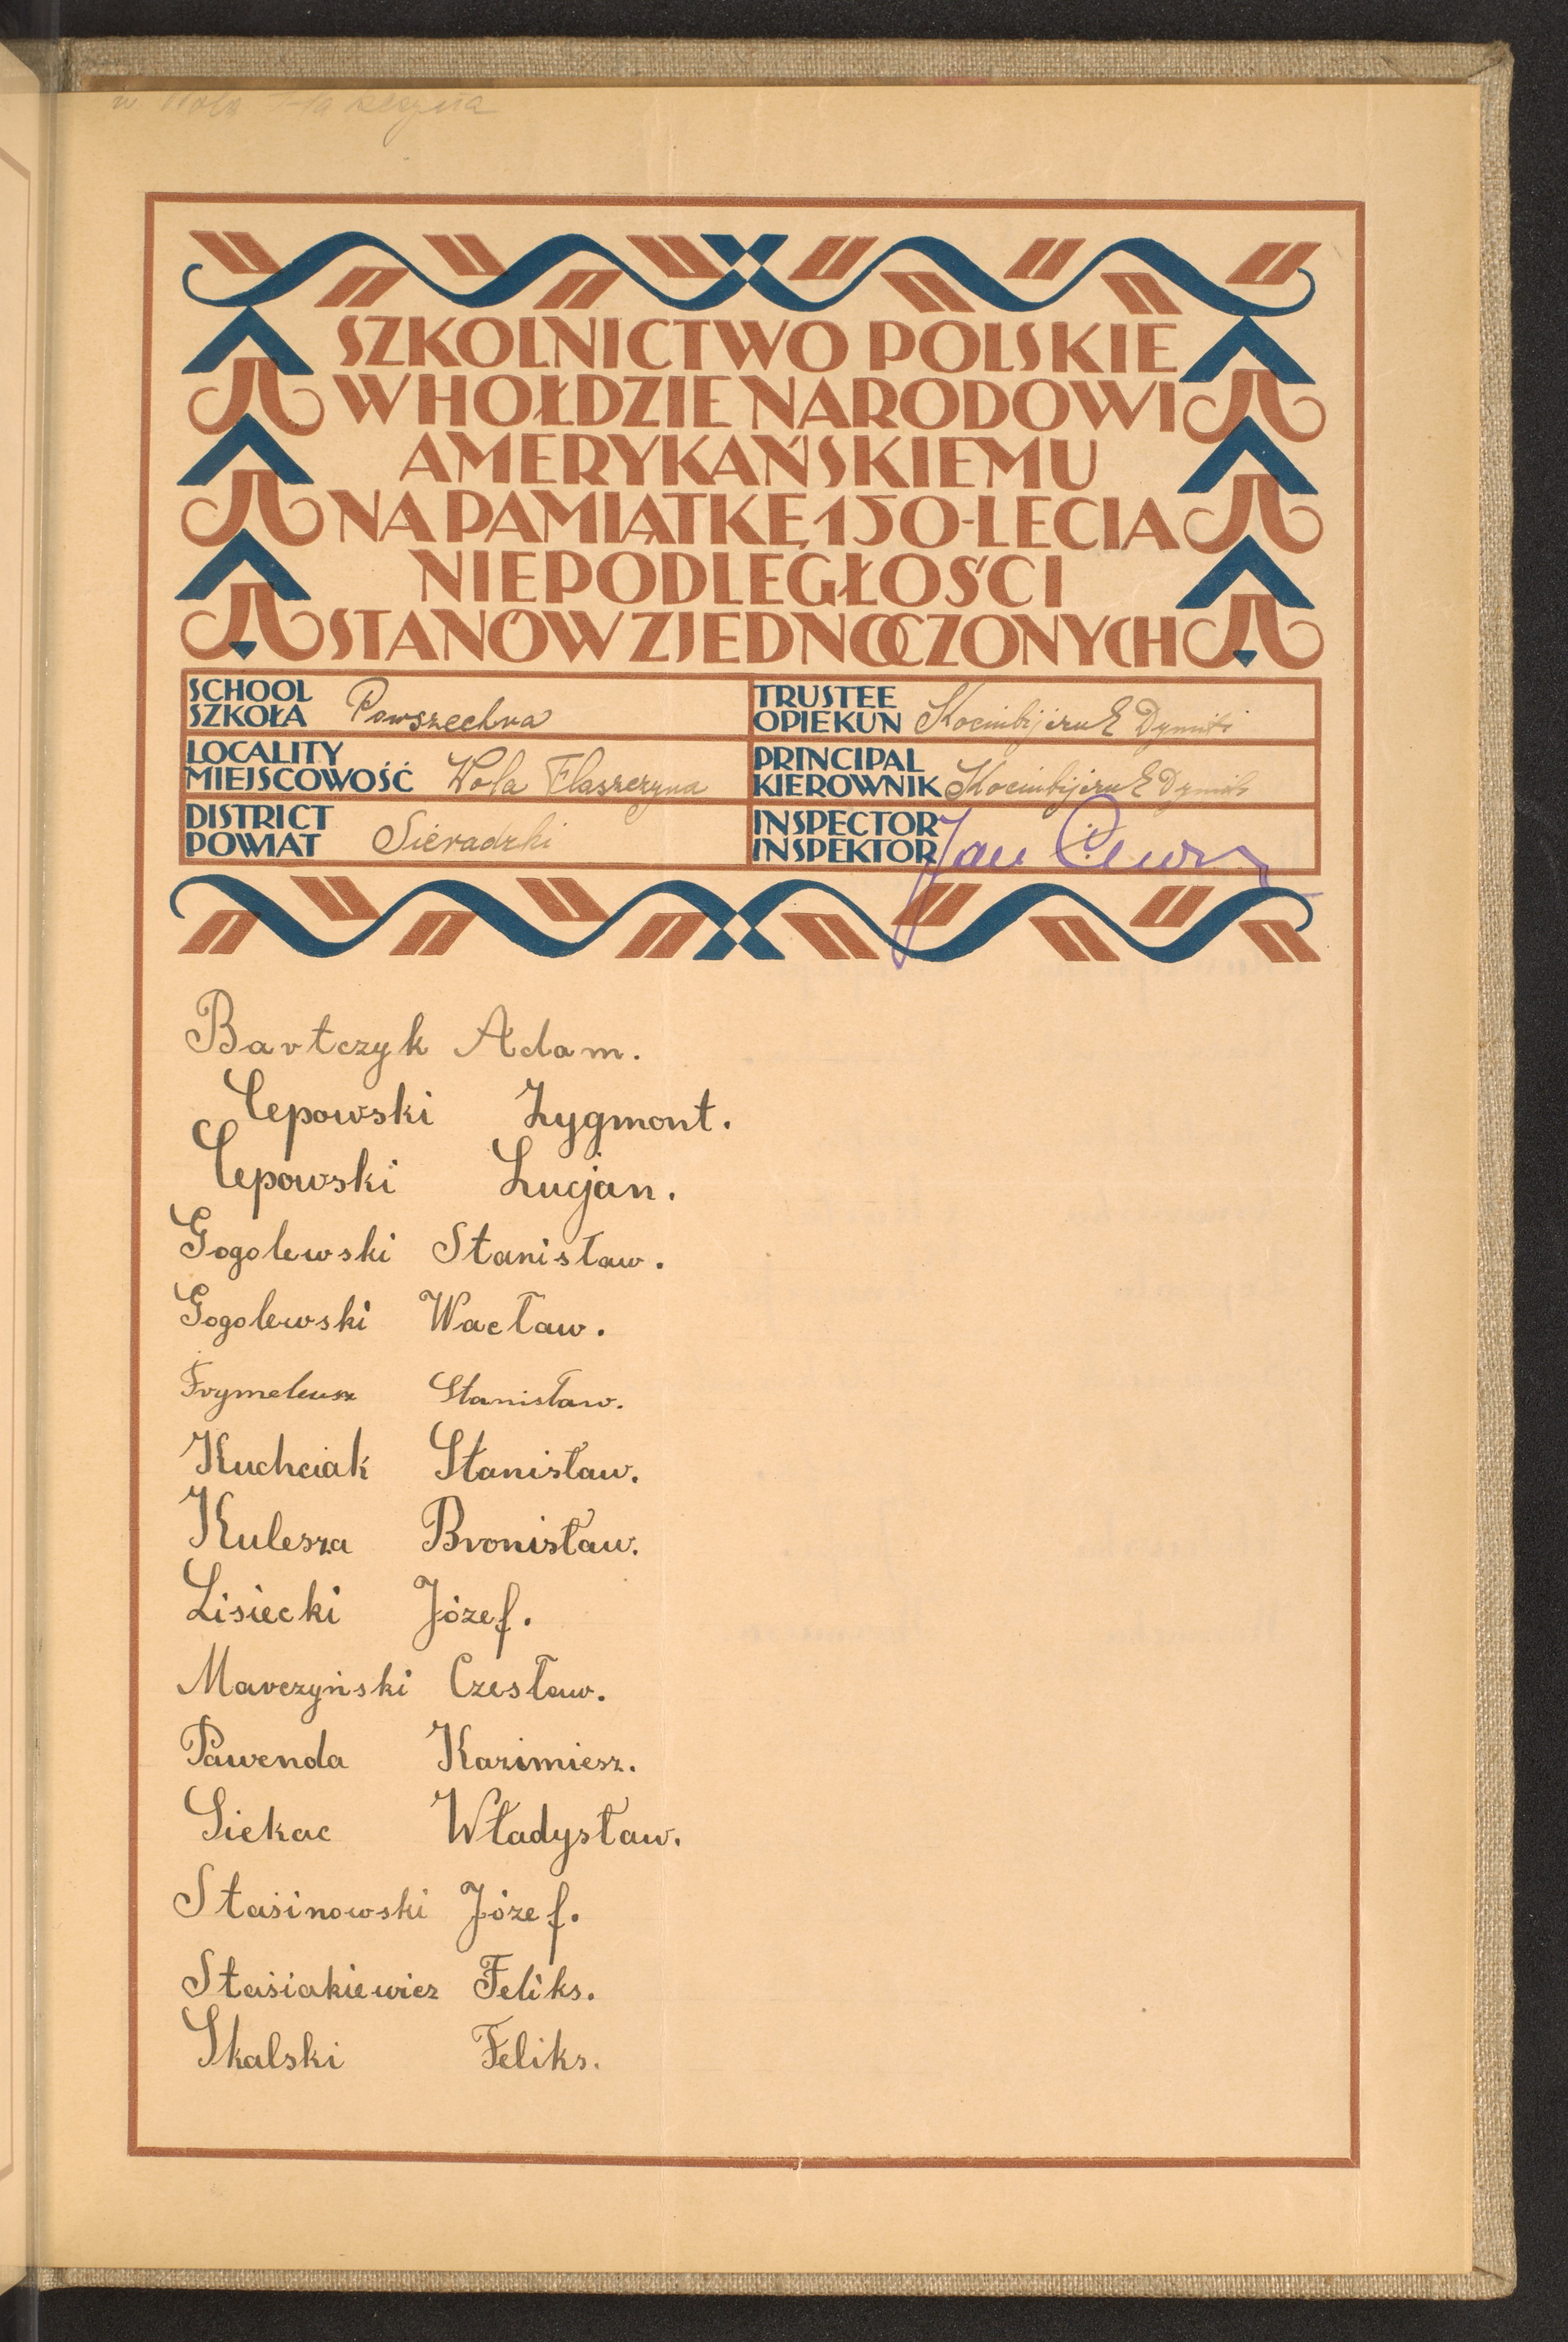 w Wola Flaszczyna
SZKOLNICTWO POLSKIE
W HOŁDZIE NARODOWI
AMERYKAŃSKIEMU
NA PAMIĄTKĘ 150-LECIA
NIEPODLEGŁOŚCI
STANÓW ZJEDNOCZONYCH
SCHOOL
SZKOŁA Powszechna
TRUSTEE
OPIEKUN
LOCALITY
MIEJSCOWOŚĆ Wola Flaszczyna
PRINCIPAL
KIEROWNIK
DISTRICT
POWIAT Sieradzki
INSPECTOR
INSPEKTOR Jan
Bartczyk Adam.
Cepowski Zygmont.
Cepowski Lucjan.
Gogolewski Stanisław.
Gogolewski Wacław.
Frymekusz Stanisław.
Kuchciak Stanisław.
Kulesza Bronisław.
Lisiecki Józef.
Marczyński Czesław.
Pawenda Kazimiesz.
Siekac Władysław.
Stasinowski Józef.
Stasiakiewicz Feliks.
Skalski Feliks.